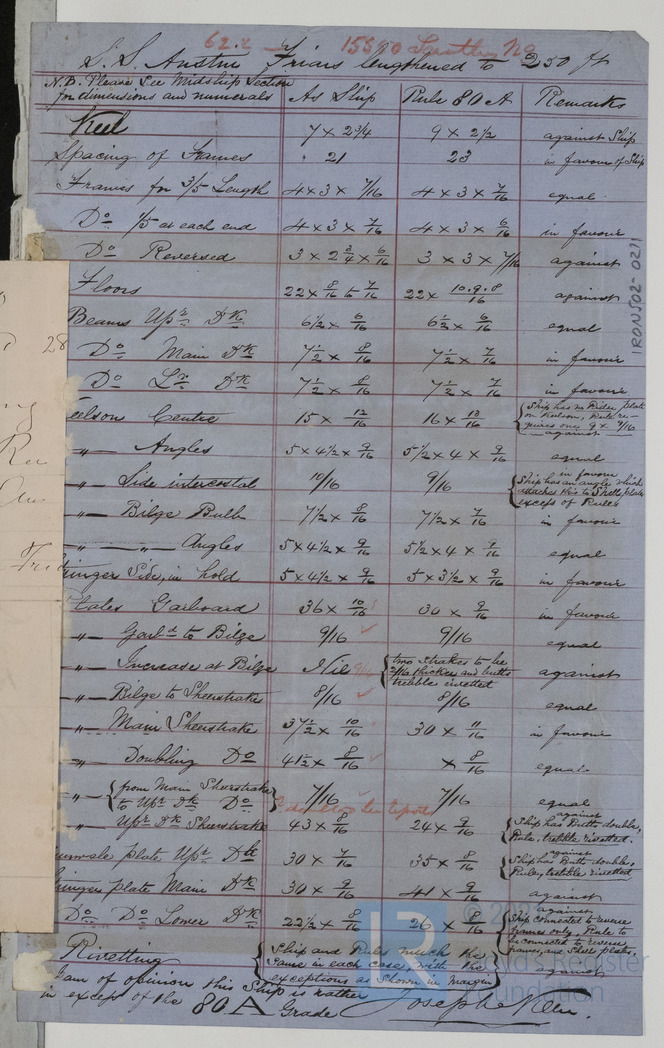 62.2 15580
S.S. Austin Friars lengthened to 250 ft
N.B. Please See Midship Section
for dimensions and numerals As Ship Rule 80 A Remarks
Keel 7 x 2 3/4 9 x 2 1/2 against Ship
Spacing of Frames 21 23 in favour of Ship
Frames for 3/5 Length 4 x 3 x 7/16 4 x 3 x 7/16 equal
Do 1/5 at each end 4 x 3 x 7/16 4 x 3 x 6/16 in favour
Do Reversed 3 x 2 3/4 x 6/16 3 x 3 x 7/16 against
Floors 22 x 8/16 to 7/16 22 x 10.9.8/16 against
Beams Upr Dk 6 1/2 x 6/16 6 1/2 x 6/16 equal
Do Main Dk 7 1/2 x 8/16 7 1/2 x 7/16 in favour
Do Lr Dk 7 1/2 x 8/16 7 1/2 x 7/16 in favour
eelson Centre 15 x 12/16 16 x 13/16 Ship has no Rider plate
on Keelson, Rule re-
quires one 9 x 9/16
against
-"- Angles 5 x 4 1/2 x 9/16 5 1/2 x 4 x 9/16 equal
-"- Side intercostal 10/16 9/16 in favour
Ship has an angle which
attaches this to Shell plate
except of Rules
-"- Bilge Bulb 7 1/2 x 8/16 7 1/2 x 7/16 in favour
-"- -"- Angles 5 x 4 1/2 x 9/16 5 1/2 x 4 x 9/16 equal
ringer Side, in hold 5 x 4 1/2 x 9/16 5 x 3 1/2 x 9/16 in favour
lates Garboard 36 x 10/16 30 x 9/16 in favour
-"- Garbd to Bilge 9/16 9/16 equal
-"- Increase at Bilge Nil two strakes to be
2/16 thicker and butts
treble rivetted against
-"- Bilge to Sheerstrake 8/16 8/16 equal
-"- Main Sheerstrake 37 1/2 x 10/16 30 x 11/16 in favour
-"- Doubling Do 41 1/2 x 8/16 x 8/16 equal
-"- from Main Sheerstrake
to Upr Dk Do 7/16 7/16 equal
Upr Dk Sheerstrake 43 x 8/16 24 x 9/16 against
Ship has Butts double,
Rule, treble rivetted.
unwale plate Upr Dk 30 x 7/16 35 x 8/16 against
Ship has Butts double,
Rule, treble rivetted
ringer plate Main Dk 30 x 9/16 41 x 9/16 against
Do Do Lower Dk 22 1/2 x 8/16 26 x 8/16 against
Ship connected to reverse
frames only, Rule to
be connected to reverse
frames, and Shell plates.
Rivetting Ship and Rules much the
Same in each case, with the
exceptions as Shown in Margin against
I am of opinion this Ship is rather
in except of the 80 A Grade Joseph Keen.
IRON502-0271
28
LR
Foundation